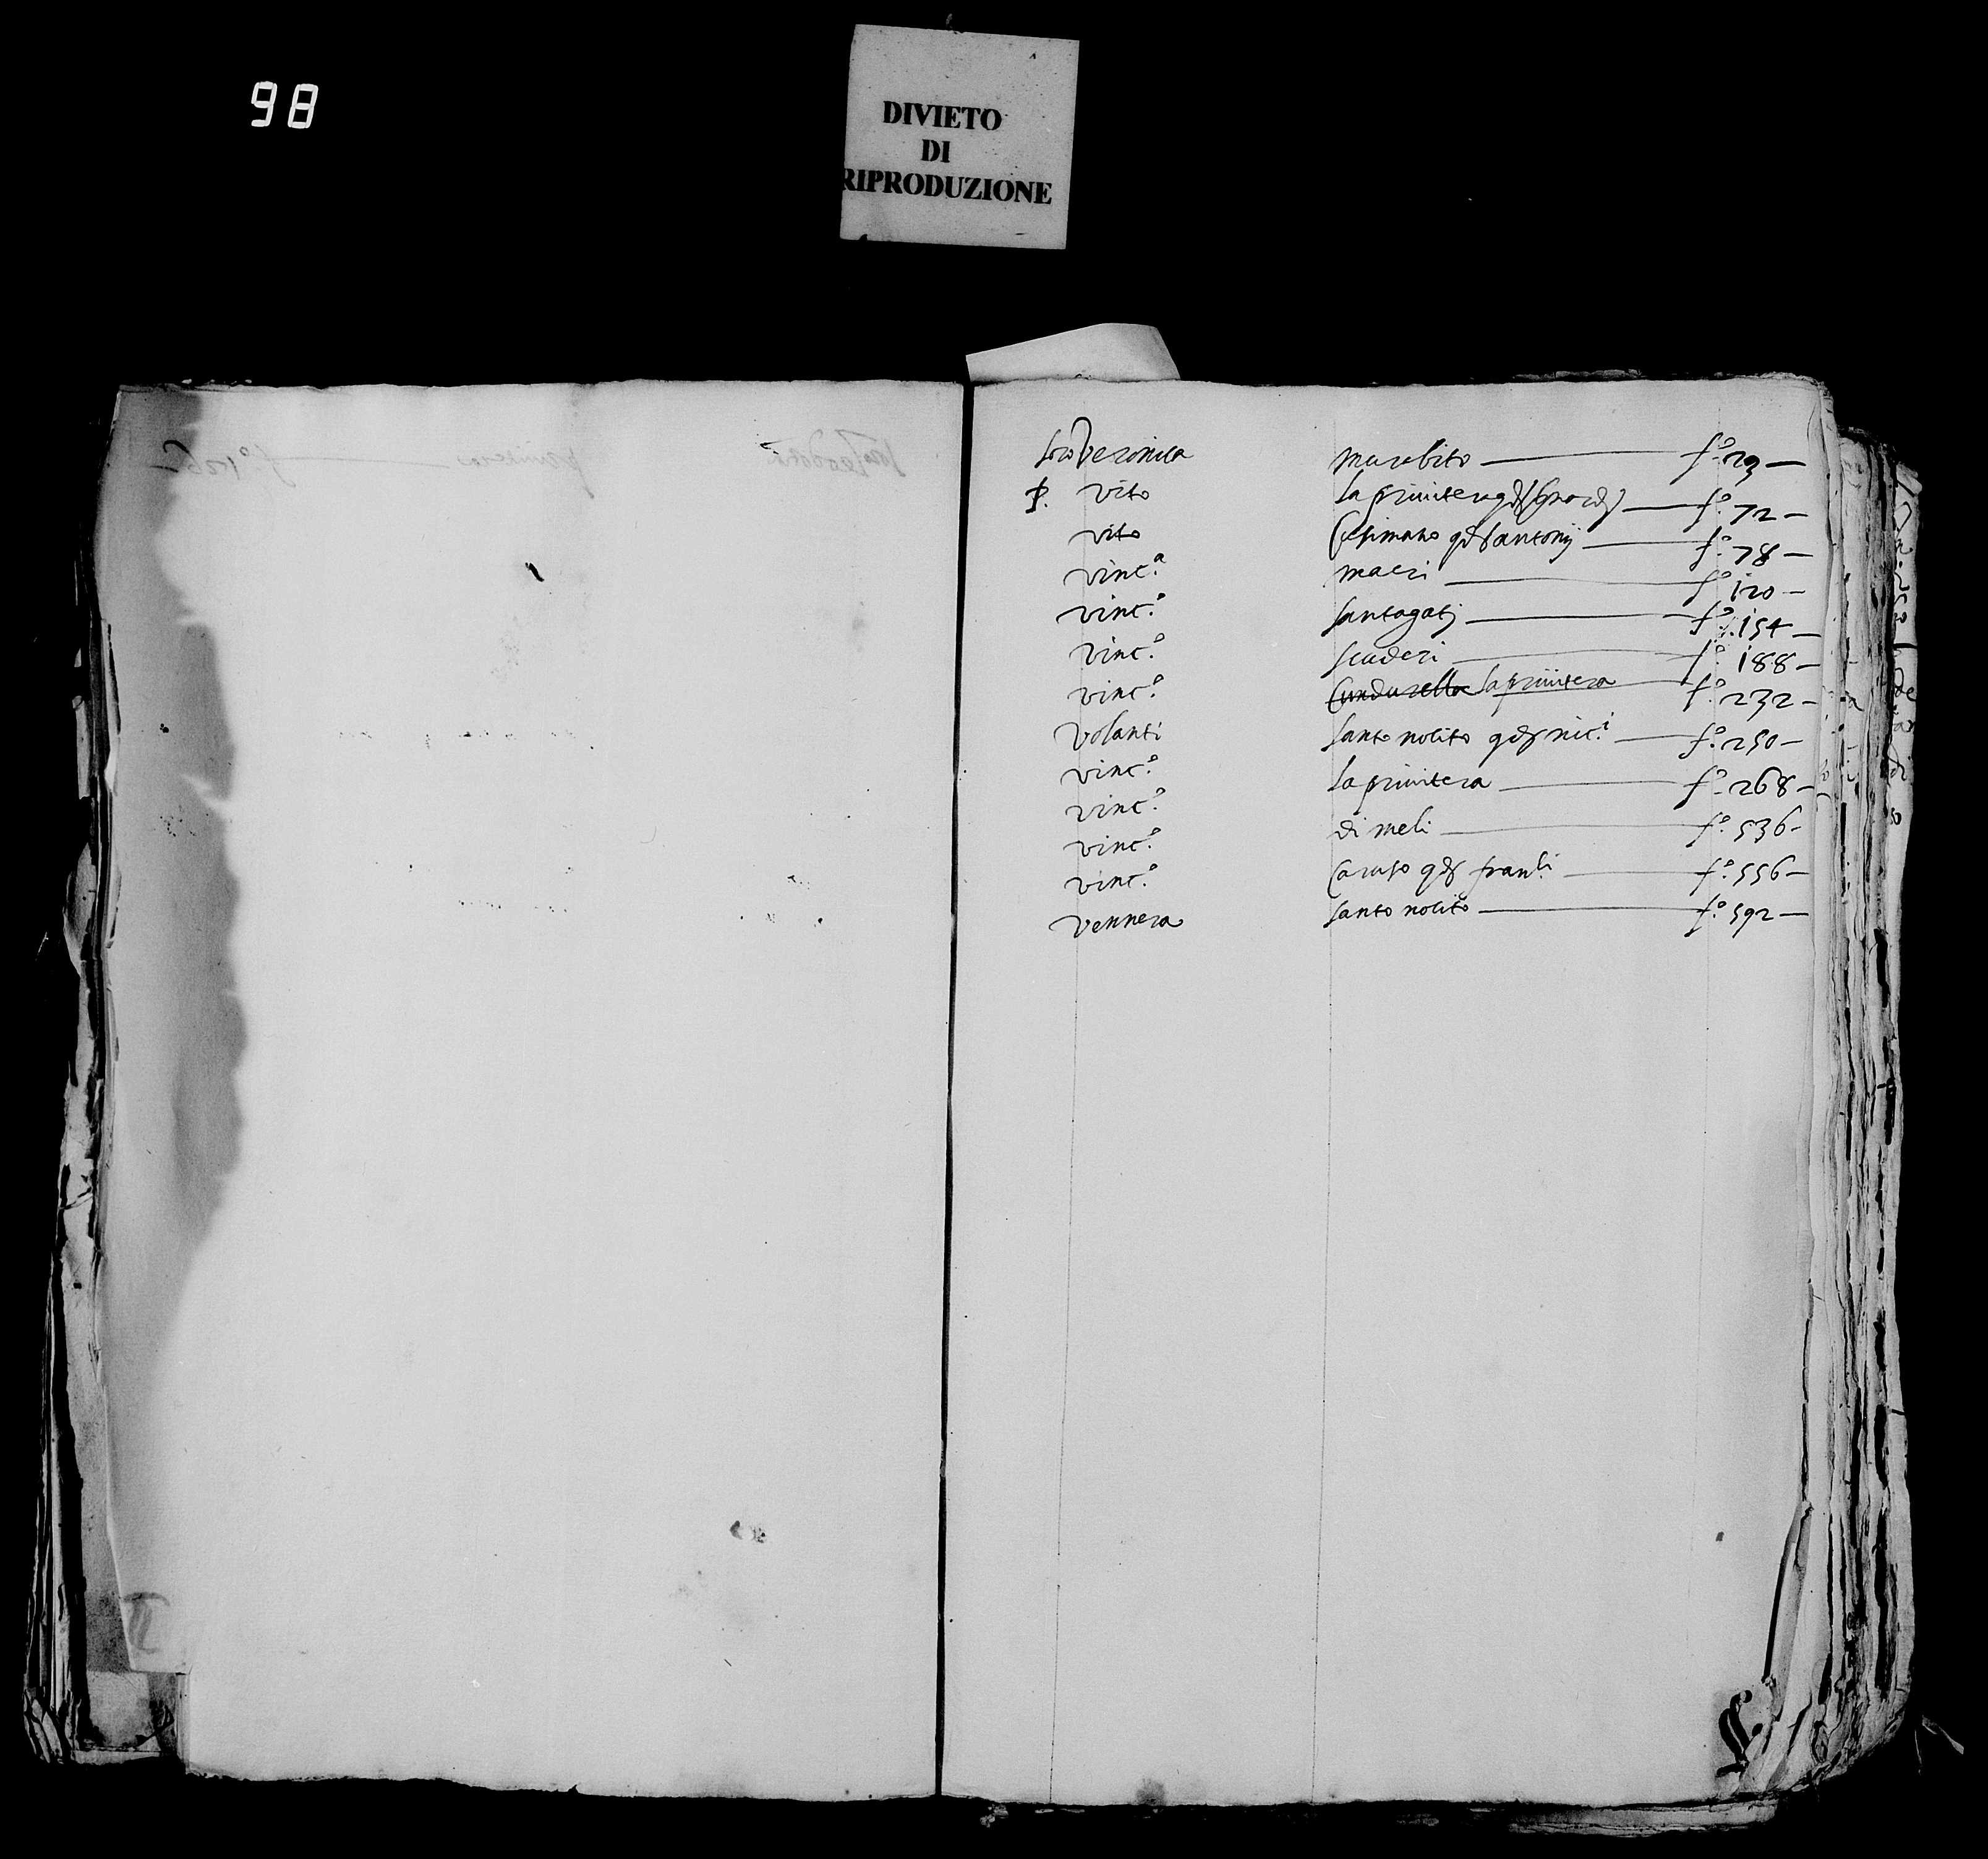 98
DIVIETO
DI
RIPRODUZIONE
soro Veronica murabito f.º 29
P. vito la primitera qdſ f.º 72
vito qdſ antonij f.º 78
vinc.ª macri f.º 120
vinc.º santagati f.º 154
vinc.º scuderi f.º 188
vinc.º Cundurella la primitera f.º 232
Volanti santo nolito qdſ nic.i f.º 250
vinc.º la primitera f.º 268
vinc.º di meli f.º 536
vinc.º
vinc.º Caruso qdſ franc.i f.º 556
Vennera santo nolito f.º 592